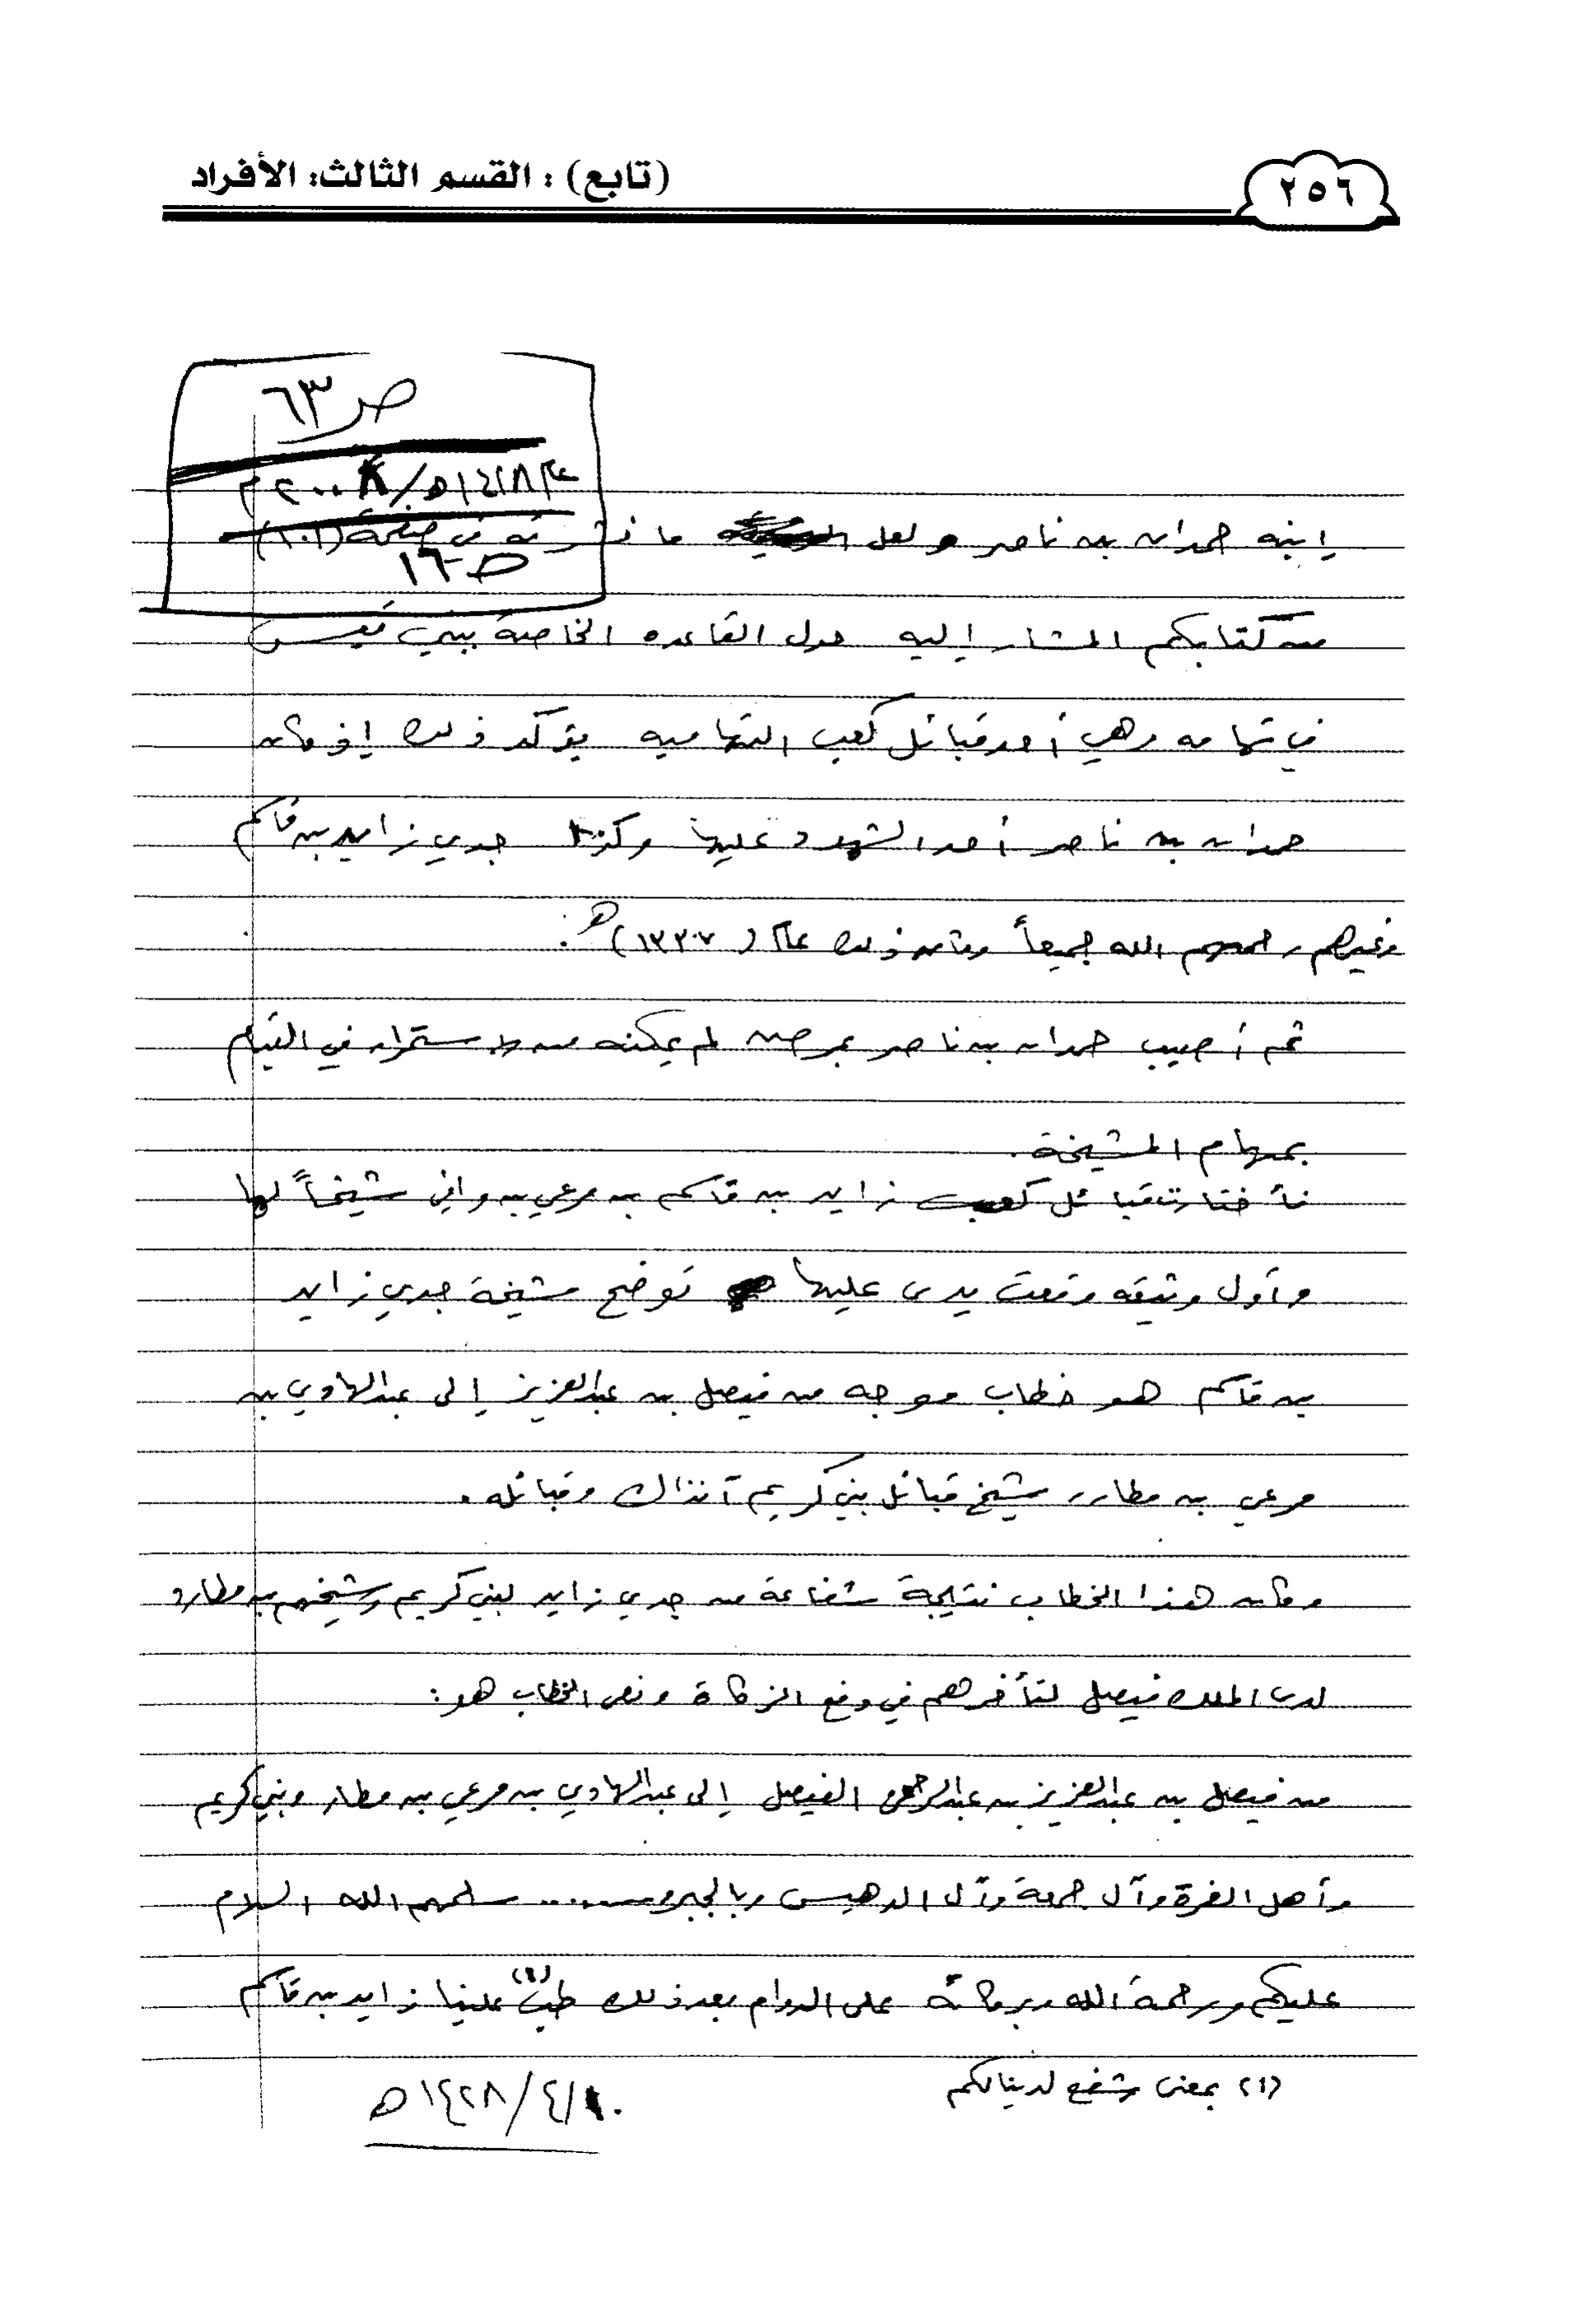 (تابع) : القسم الثالث: الأفراد
٢٥٦
ص ٦٣
عام ١٤٢٨هـ/٢٠٠٨م
ص ١٦
إبنه حمدان بن ناصر ولعل ما نشرته في صفحة (١٠١)
من كتابكم المشار إليه حول القاعده الخاصة ببني قيس
في تهامه وهي أحد قبائل كعب التهاميه يؤكد ذلك إذ كان
حمدان بن ناصر أحد الشهود عليها وكذا جدي زايد بن قاسم
وغيرهم رحمهم الله جميعاً وكان ذلك عام (١٣٣٧)هـ.
ثم أصيب حمدان بن ناصر بمرض لم يمكنه من الاستمرار في القيام
بمهام المشيخة.
فأختارت قبائل كعب زايد بن قاسم بن مرعي بن وافي شيخاً لها
وأول وثيقه وقعت يدى عليها توضح مشيخة جدي زايد
بن قاسم هو خطاب موجه من فيصل بن عبدالعزيز إلى عبدالهادي بن
مرعي بن مطارد شيخ قبائل بني كريم آنذاك وقبائله.
وكان هذا الخطاب نتيجة شفاعة من جدي زايد لبني كريم وشيخهم بن مطارد
لدى الملك فيصل لتأخرهم في دفع الزكاة ونص الخطاب هو:
من فيصل بن عبدالعزيز بن عبدالرحمن الفيصل إلى عبدالهادي بن مرعي بن مطارد وبني كريم
وأهل الفرة وآل جمعة وآل الدهيس ..... سلمهم الله السلام
عليكم ورحمة الله وبركاته على الدوام بعد ذلك طب(١) علينا زايد بن قاسم
(١) بمعنى شفع لدينا لكم
١٤٢٨/٤/١٠هـ